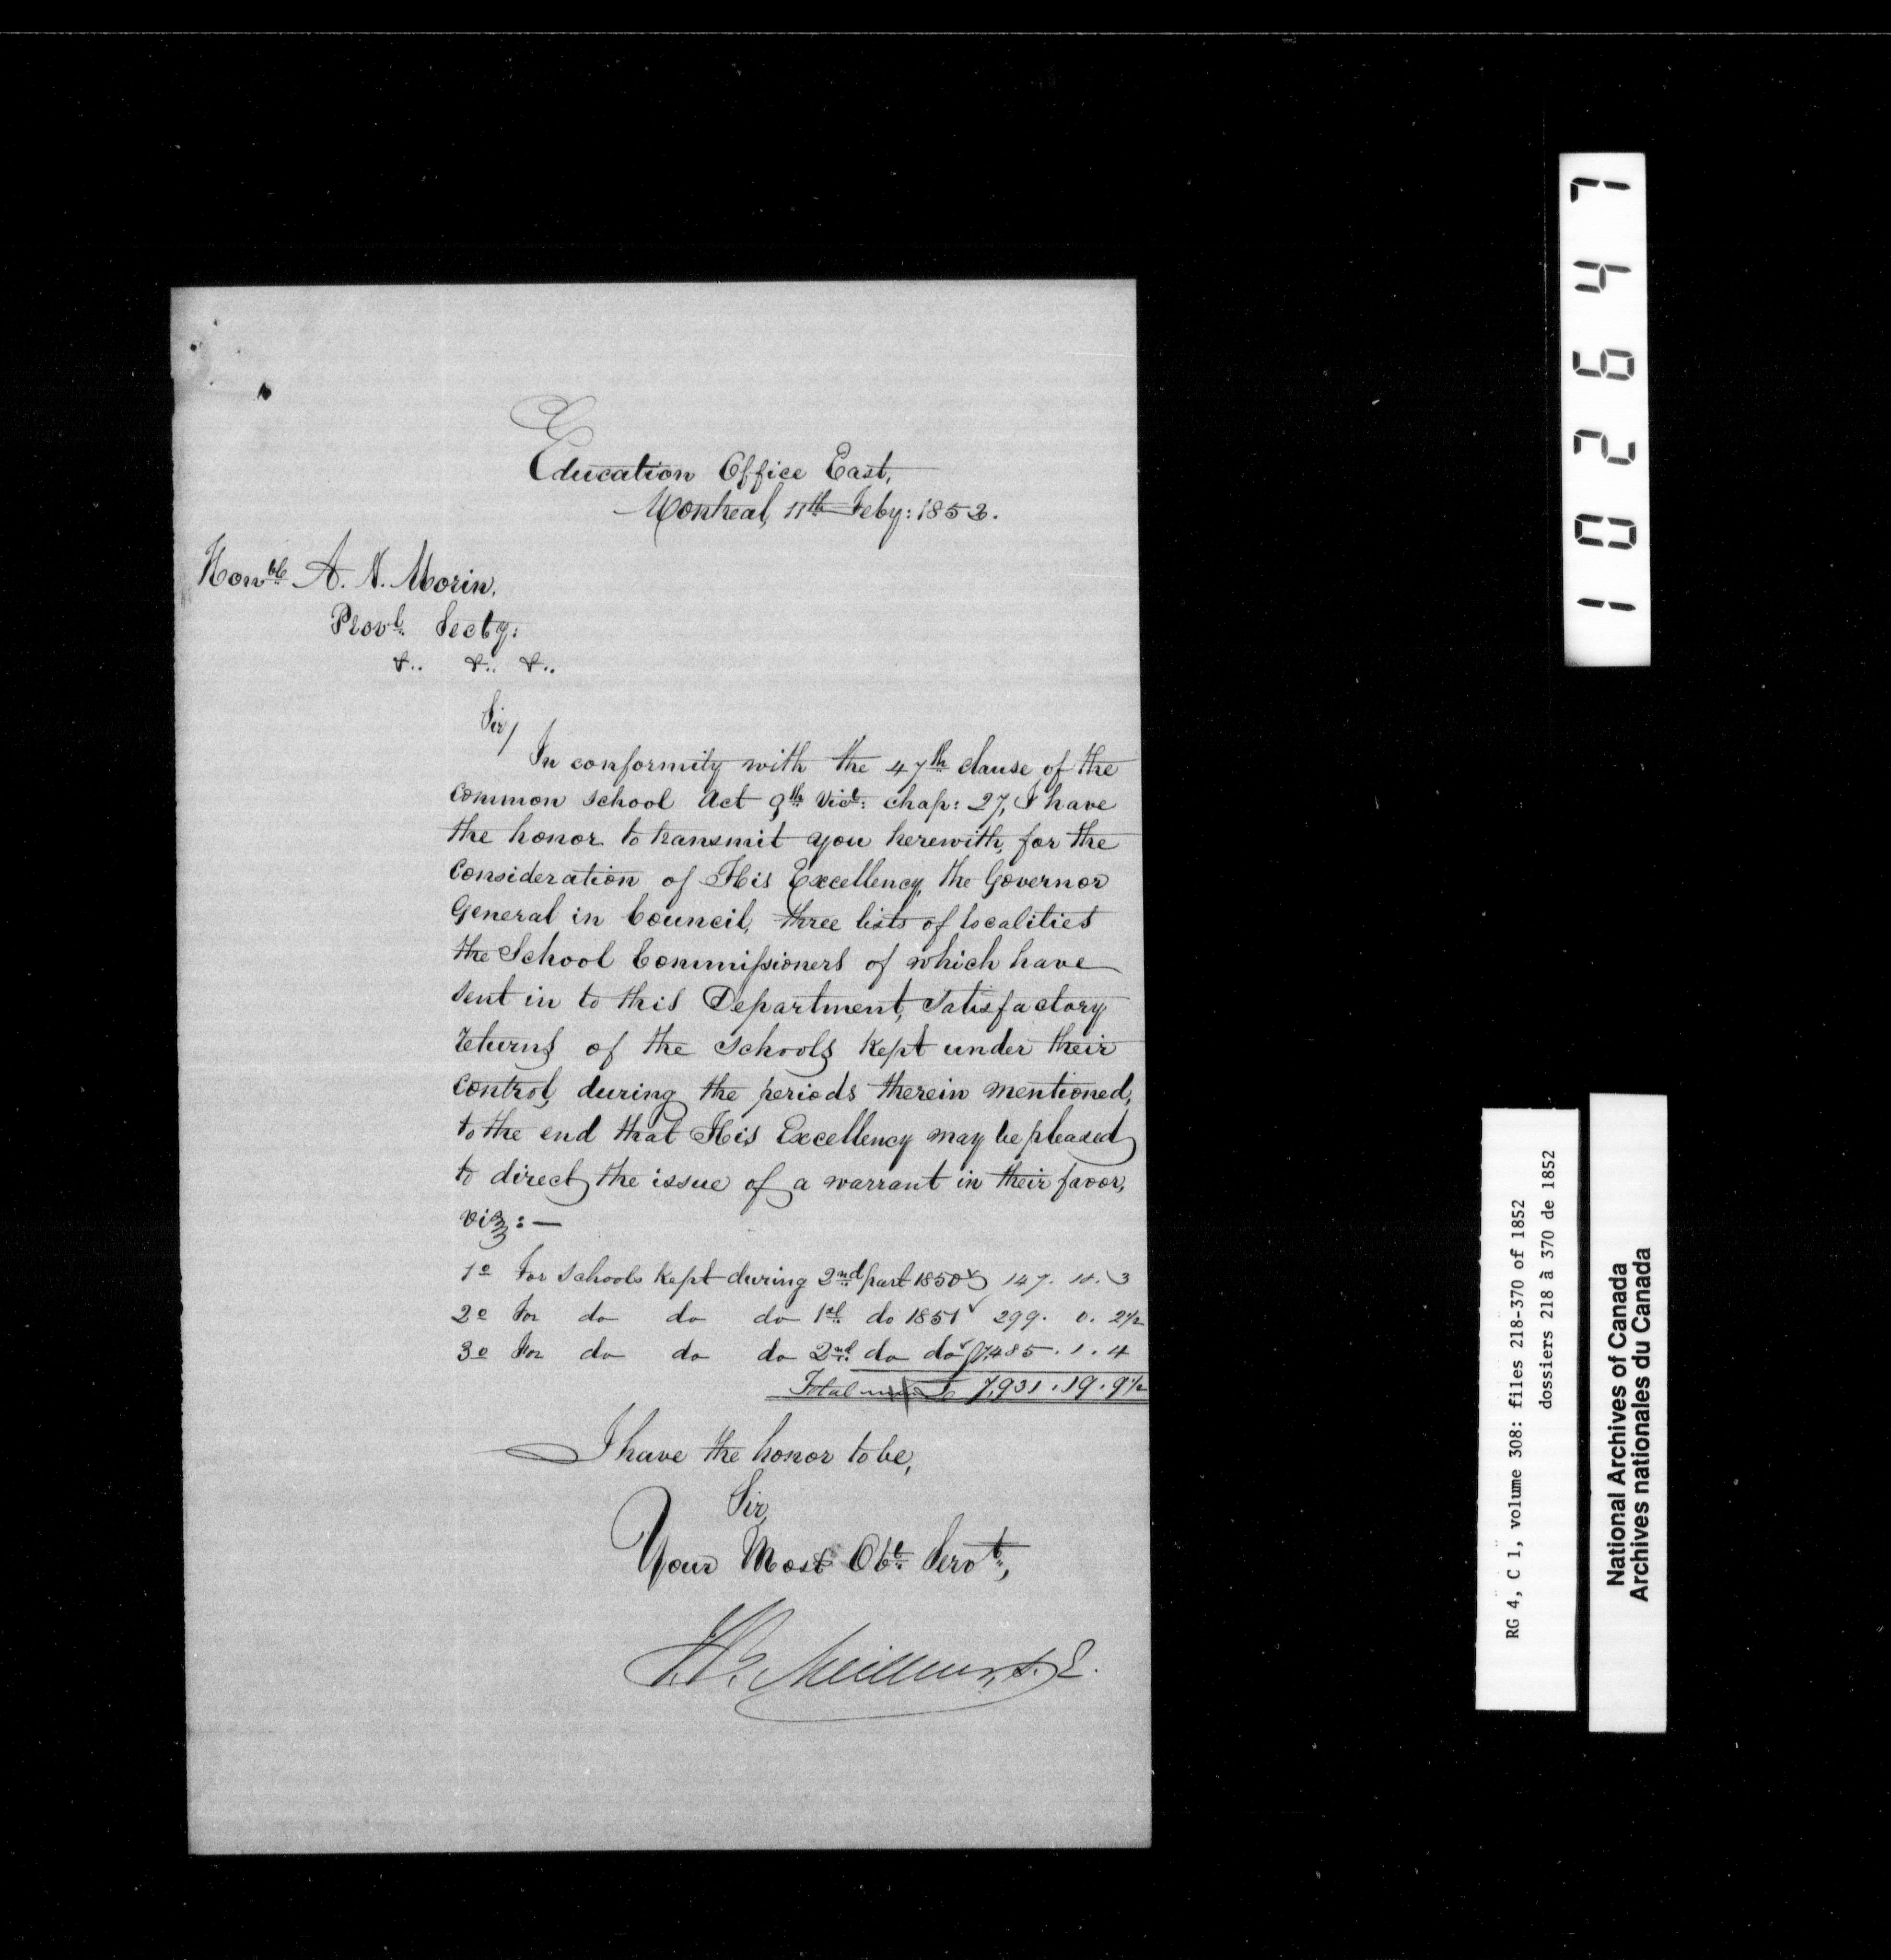 Education Office East,
Montreal, 11th Feby: 1852.
Honble A. N. Morin,
Provl. Secty:
&.. &.. &..
Sir,
In conformity with the 47th clause of the
Common School Act 9th Vict: chap: 27, I have
the honor to transmit you herewith, for the
Consideration of His Excellency, the Governor
General in Council, three lists of localities
the School Commissioners of which have
sent in to this Department, Satisfactory
returns of the Schools kept under their
control, during the periods therein mentioned,
to the end that His Excellency may be pleased
to direct the issue of a warrant in their favor,
viz: —
1o For Schools kept during 2nd part 1850 £ 147. 18. 3
2o For do do do 1st do 1851 299. 0. 2½
3o For do do do 2nd do do 7,485. 1. 4
Total £ 7,931. 19. 9½
I have the honor to be,
Sir,
Your Most Obt. Servt.,
J. B. Meilleur, S. E.
102647
RG 4, C 1, volume 308: files 218-370 of 1852
dossiers 218 à 370 de 1852
National Archives of Canada
Archives nationales du Canada